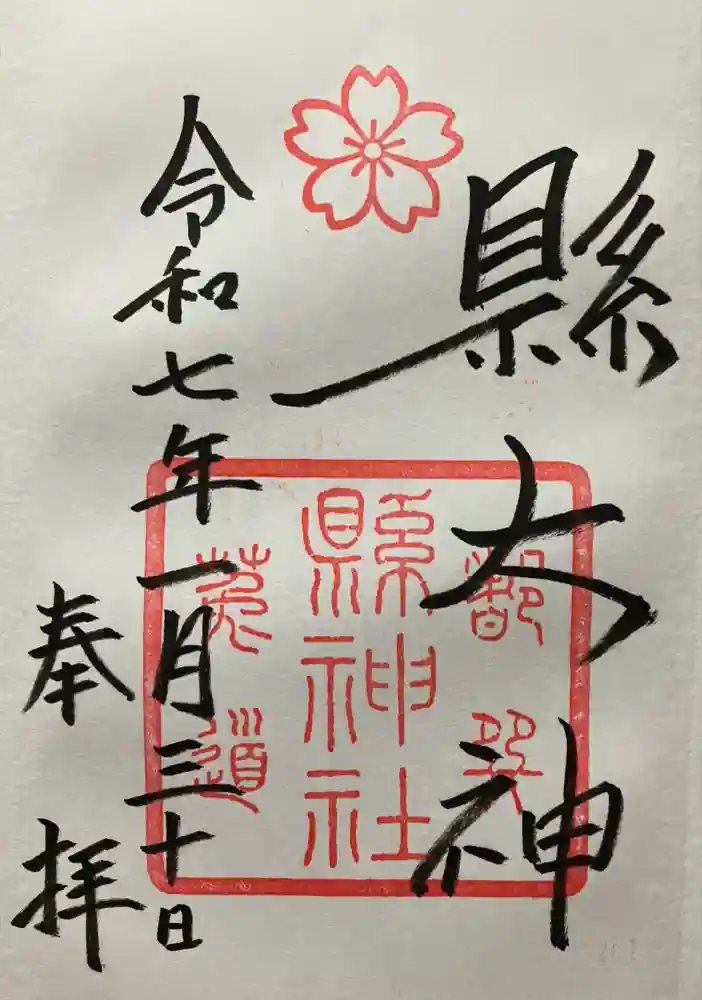 縣大神
都巽
縣神社
菟道
令和七年一月三十日
奉拝